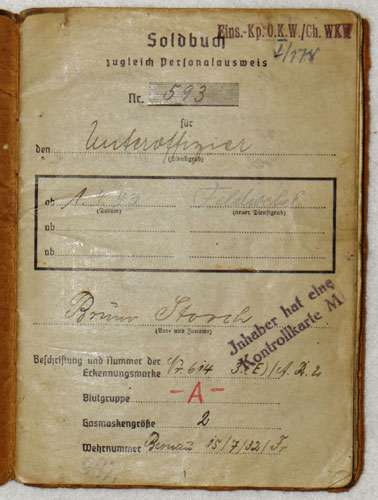 Eins.-Kp.O.K.W./Ch. WKW
I/178
Soldbuch
zugleich Personalausweis
Nr. 593
für
den Unteroffizier
(Dienstgrad)
ab
(Datum) (neuer Dienstgrad)
ab
ab
Bruno Storch
(Vor- und Zuname)
Inhaber hat eine
Kontrollkarte M
Beschriftung und Nummer der
Erkennungsmarke Nr. 614
Blutgruppe -A-
Gasmaskengröße 2
Wehrnummer Bernau 15/7/32/
1